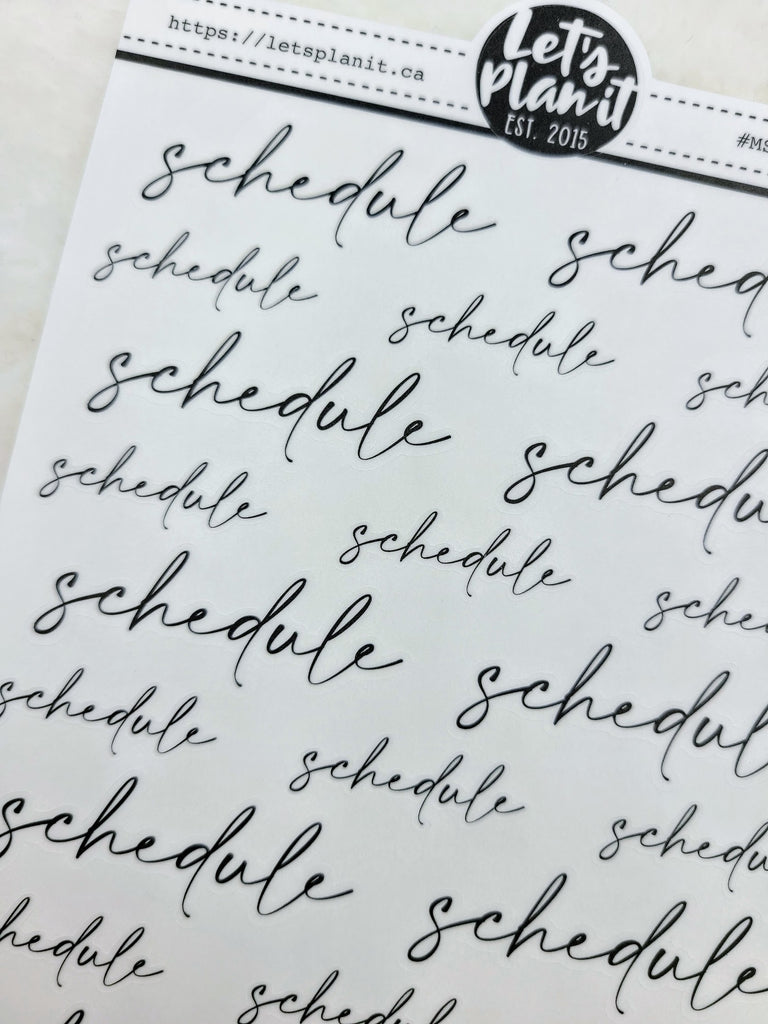 https://letsplanit.ca
Let's
plan it
EST. 2015
#MS
schedule sched
schedule schedule sch
schedule schedu
schedule schedule sche
schedule schedul
schedule schedule schedu
schedule schedule
hedule schedule